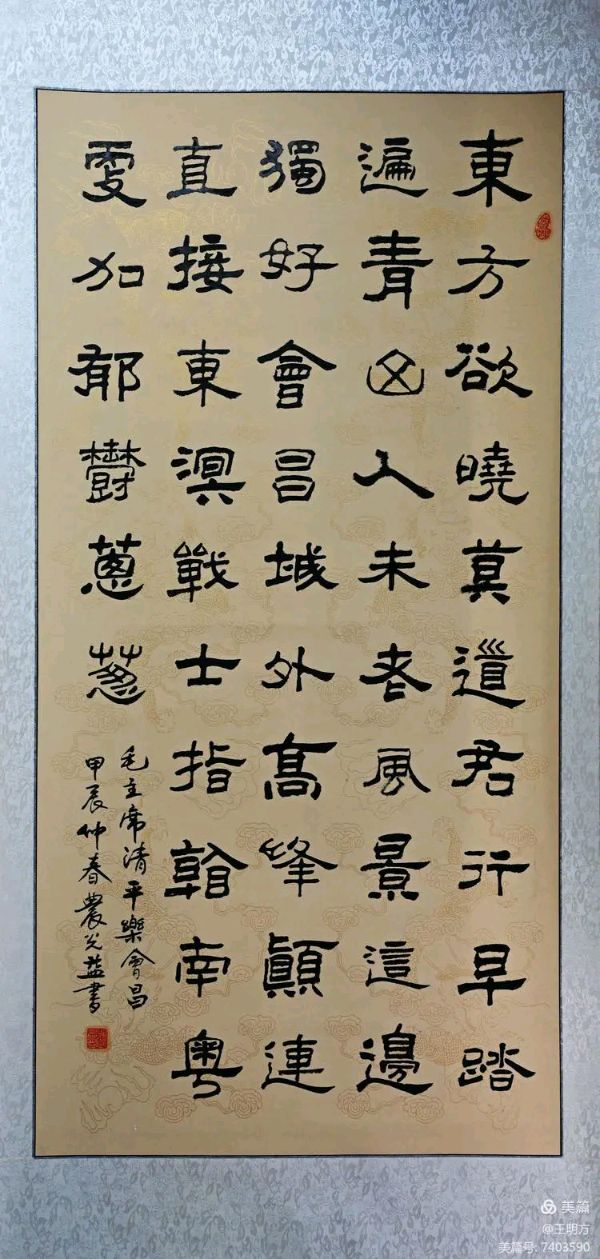 東方欲曉莫道君行早踏
遍青山人未老風景這邊
獨好會昌城外高峰顛連
直接東溟戰士指看南粵
更加郁鬱蔥蔥
毛主席清平樂會昌
甲辰仲春農光書
美篇
@王明方
美篇号: 7403590